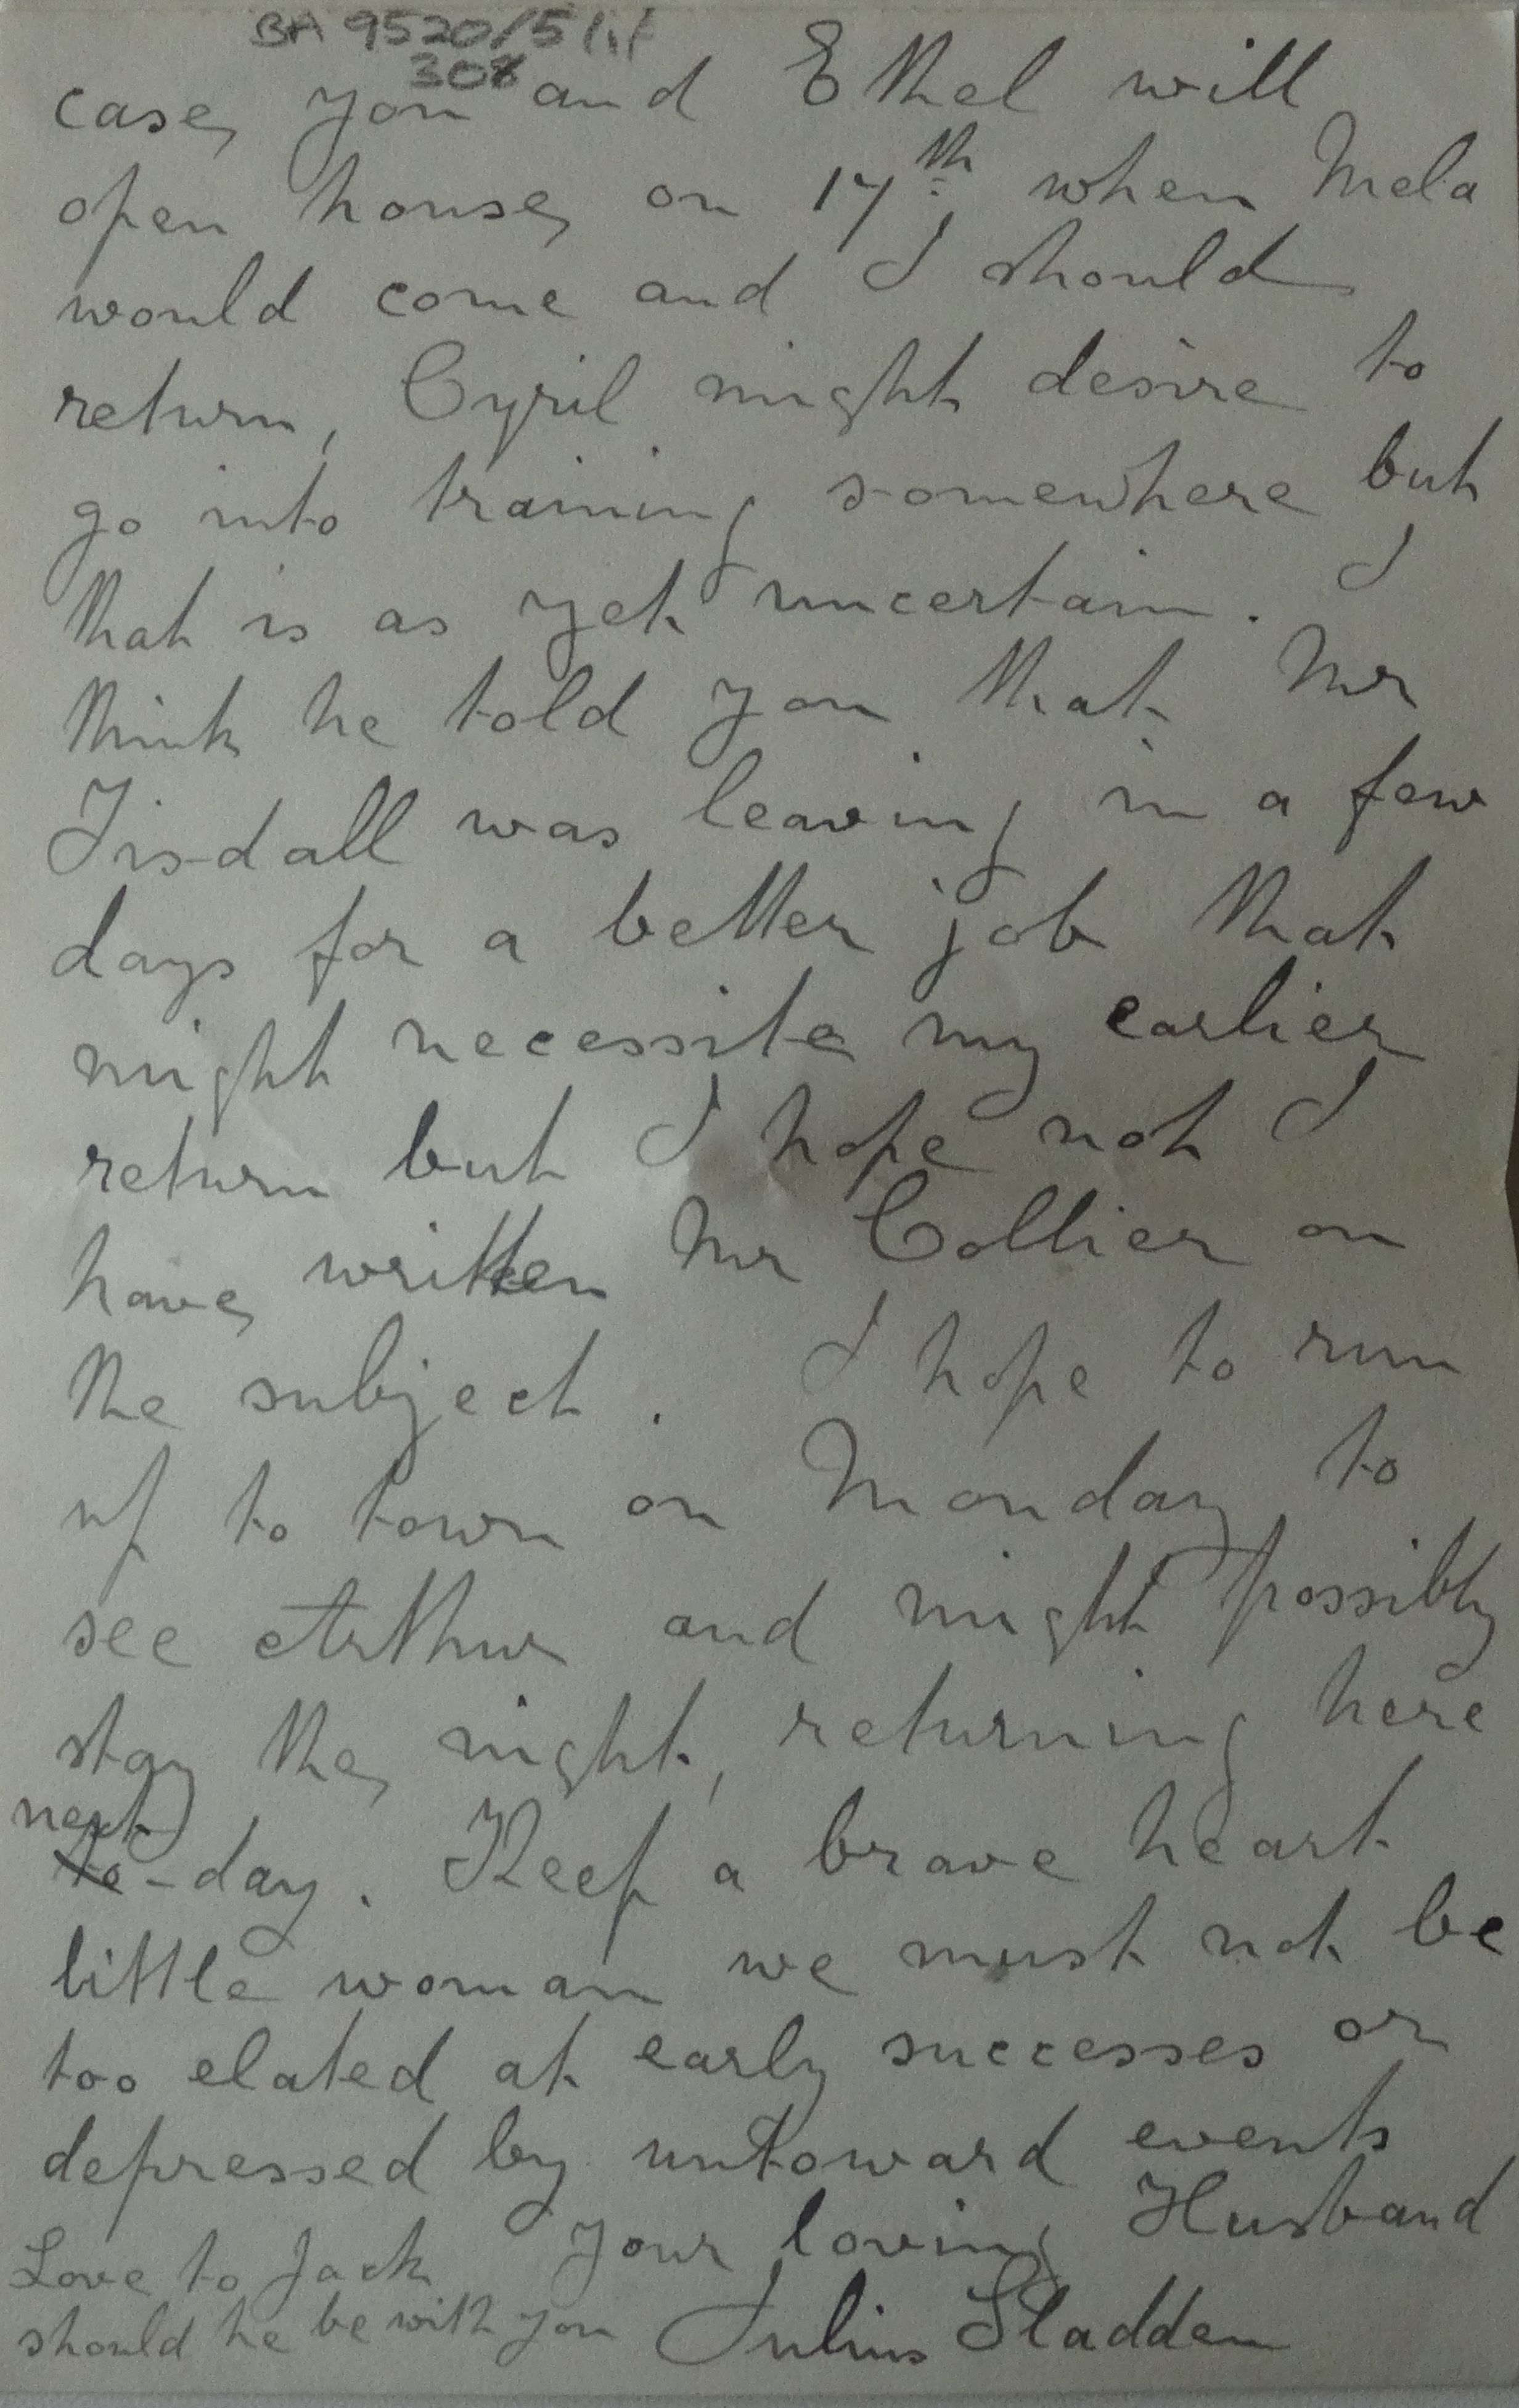 BA 9520/5
308
case you and Ethel will
open house on 17th when Mela
would come and I should
return, Cyril might desire to
go into training somewhere but
that is as yet uncertain. I
think he told you that Mr
Tisdall was leaving in a few
days for a better job that
might necessite my earlier
return but I hope not I
have written Mr Collier on
the subject. I hope to run
up to town on Monday to
see Arthur and might possibly
stay the night, returning here
next
to-day. Keep a brave heart
little woman we must not be
too elated at early successes or
depressed by untoward events
Your loving Husband
Julius Sladden
Love to Jack
should he be with you